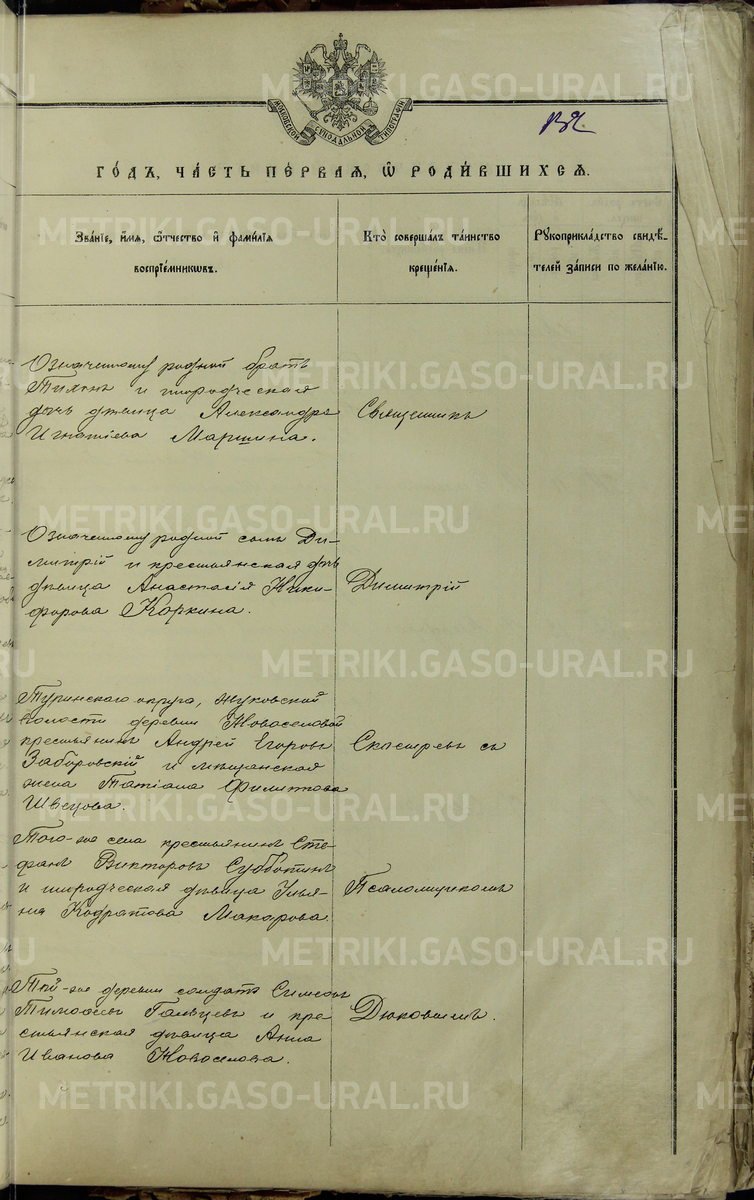 МОСКОВСКОЙ СѴНОДАЛЬНОЙ ТИПОГРАФІИ
ГО́ДЪ, ЧА́СТЬ ПЕ́РВАЯ, Ѡ҆ РОДИ́ВШИХСЯ.
Зва́нїе, и҆́мя, ѻ҆́тчество и҆ фами́лїя
воспрїе́мникѡвъ.
Кто̀ соверша́лъ та́инство
креще́нїя.
Рꙋкоприкла́дство свидѣ́-
телей за́писи по жела́нїю.
Означенному родной братъ
Тихонъ и инородческая
дочь девица Александра
Игнатіева Маршина.
Священникъ
Означенному родной сынъ Ди-
митрій и крестьянская дочь
девица Анастасія Ники-
форова Коркина.
Димитрій
Туринскаго округа, Жуковской
волости деревни Новоселовой
крестьянинъ Андрей Егоровъ
Заборовскій и мещанская
жена Татіана Филиппова
Швецова.
съ
Того-же села крестьянинъ Сте-
фанъ Викторовъ Субботинъ
и инородческая девица Улья-
на Кодратова Макарова.
Псаломщикомъ
Той-же деревни солдатъ Симеонъ
Тимофеевъ и кре-
стьянская девица Анна
Иванова Новоселова.
Дюковымъ.
METRIKI.GASO-URAL.RU